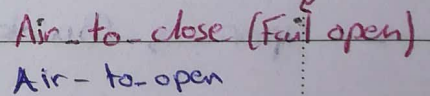 Air-to-close (Fail open)
Air-to-open